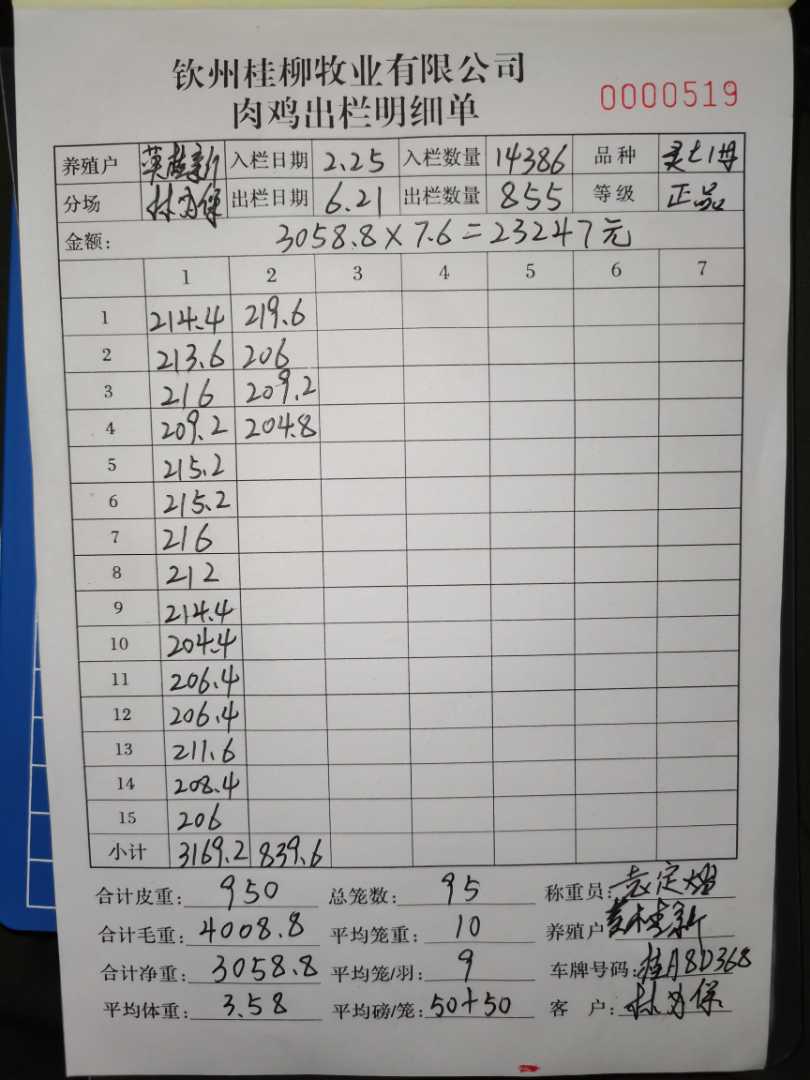 钦州桂柳牧业有限公司
肉鸡出栏明细单
0000519
养殖户 入栏日期 2.25 入栏数量 14386 品种
分场 出栏日期 6.21 出栏数量 855 等级 正品
金额: 3058.8×7.6=23247元
1 2 3 4 5 6 7
1 214.4 219.6
2 213.6 206
3 216 209.2
4 209.2 204.8
5 215.2
6 215.2
7 216
8 212
9 214.4
10 204.4
11 206.4
12 206.4
13 211.6
14 208.4
15 206
小计 3169.2 839.6
合计皮重: 950 总笼数: 95 称重员: 袁定
合计毛重: 4008.8 平均笼重: 10 养殖户
合计净重: 3058.8 平均笼/羽: 9 车牌号码: 桂A8D368
平均体重: 3.58 平均磅/笼: 50+50 客 户: 林 保